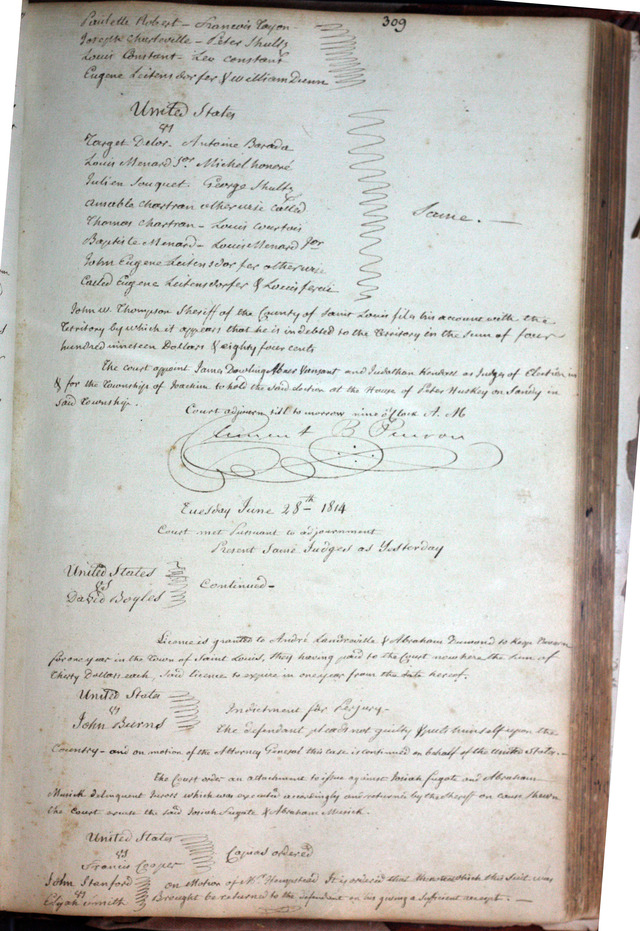 309
Paulette Robert - Francois Tayon
Joseph Charleville - Peter Shultz
Louis Constant - Lex constant
Eugene Leitensdorfer & William Dunn
United States
vs
Target Delor. Antoine Barada
Louis Menard Snr Michel honoré
Julien Jouquet. George Shultz
amable chartran otherwise called
Thomas chartran - Louis courtois
Baptiste Menard - Louis Menard Jnr
John Eugene Leitensdorfer otherwise
Called Eugene Leitensdorfer & Louis
Same. -
John W. Thompson Sheriff of the County of Saint Louis files his account with the
Territory by which it appears that he is indebted to the Territory in the sum of four
hundred nineteen Dollars & eighty four cents
The court appoint James Dowling Abner Vansant and Judathan Kendrick as Judges of Election in
& for the Township of Joachim to hold the said election at the House of Peter Huskey on Sandy in
said Township.
Court adjourn till to morrow nine oClock A. M
Clement B Penrose
Tuesday June 28th 1814
Court met Pursuant to adjournment
Present Same Judges as Yesterday
United States
vs
David Boyles
Continued -
License is granted to André Landreville & Abraham to keep Tavern
for one year in the Town of Saint Louis, they having paid to the Court now here the sum of
Thirty Dollars each, said licence to expire in one year from the date hereof.
United States
vs
John Burns
Indictment for Perjury -
The defendant pleads not guilty & puts himself upon the
Country - and on motion of the Attorney General this case is continued on behalf of the United States. -
The Court order an attachment to issue against Josiah fugate and Abraham
Musick delinquent Jurors which was executed accordingly and returned by the sheriff on cause shewn
the Court excuse the said Josiah Fugate & Abraham Musick.
United States
vs
Francis Cooper
Capias ordered
John Stanford
vs
Elijah Smith
on Motion of Mr. Hempstead It is ordered that the on which this Suit was
Brought be returned to the defendant on his giving a sufficient receipt. -